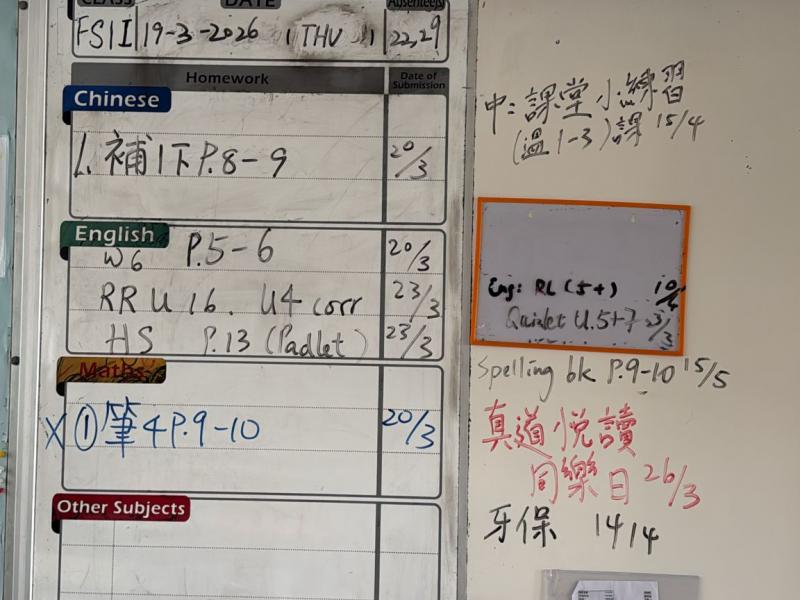 CLASS DATE Absentee(s)
FS1I 19-3-2026 (THU) 22,29
Homework Date of Submission
Chinese
1. 補1下P.8-9 20/3
English
W6 P.5-6 20/3
RR U16. U4 corr 23/3
HS P.13 (Padlet) 23/3
Maths
X ①筆4P.9-10 20/3
Other Subjects
中:課堂小練習
(溫1-3)課 15/4
Eng: RL (5+) 10/4
Quizlet U.5+7 23/3
Spelling bk P.9-10 15/5
真道悅讀
同樂日 26/3
牙保 14/4